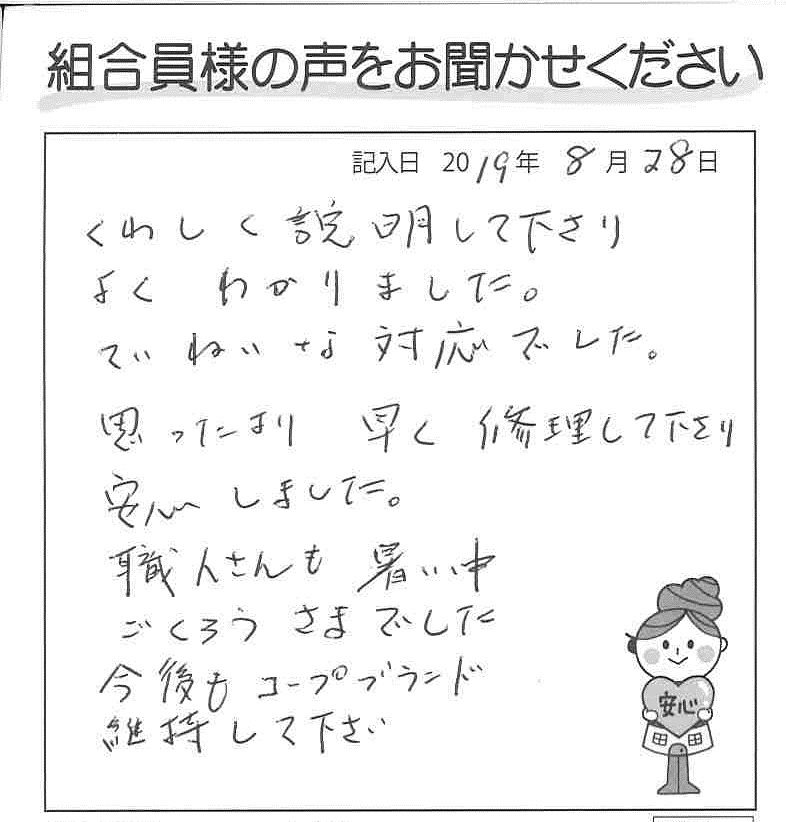 組合員様の声をお聞かせください
記入日 2019年 8月28日
くわしく説明して下さり
よく わかりました。
ていねいな対応でした。
思ったより 早く 修理して下さり
安心しました。
職人さんも 暑い中
ごくろうさまでした
今後もコープブランド
維持して下さい
安心